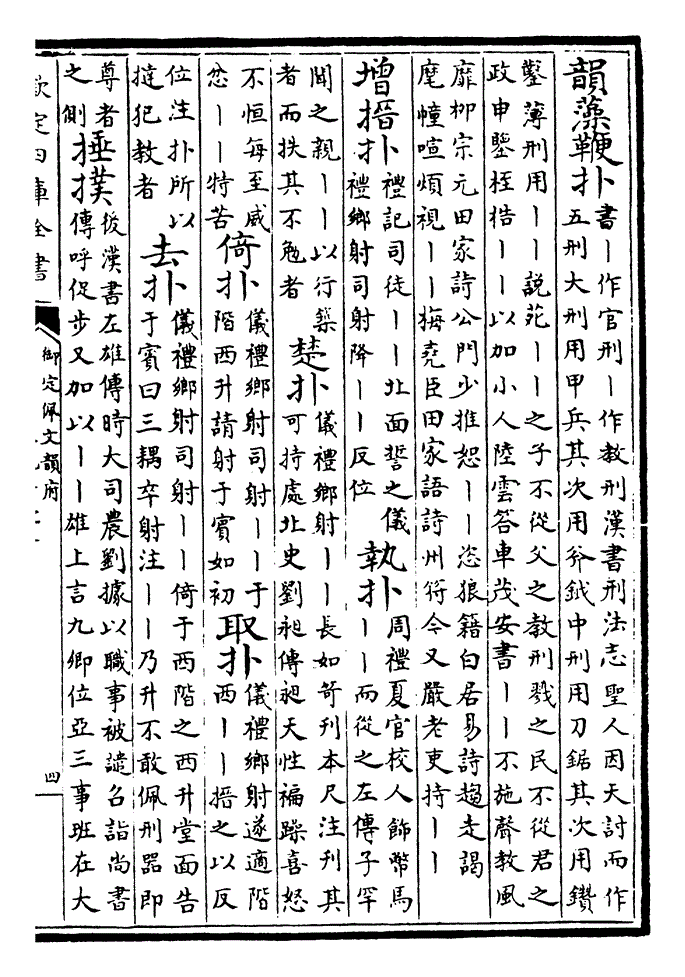 韻藻鞭扑書丨作官刑丨作教刑漢書刑法志聖人因天討而作
五刑大刑用甲兵其次用斧鉞中刑用刀鋸其次用鑽
鑿薄刑用丨丨說苑丨丨之子不從父之教刑戮之民不從君之
政申鑒桎梏丨丨以加小人陸雲答車茂安書丨丨不施聲教風
靡柳宗元田家詩公門少推恕丨丨恣狼籍白居易詩趨走謁
麾幢喧煩視丨丨梅堯臣田家語詩州符今又嚴老吏持丨丨
增搢扑禮記司徒丨丨北面誓之儀
禮鄉射司射降丨丨反位
執扑周禮夏官校人飾幣馬
丨丨而從之左傳子罕
聞之親丨丨以行築
者而抶其不勉者
楚扑儀禮鄉射丨丨長如笴刊本尺注刊其
可持處北史劉昶傳昶天性褊躁喜怒
不恒每至威
忿丨丨特苦
倚扑儀禮鄉射司射丨丨于
階西升請射于賓如初
取扑儀禮鄉射遂適階
西丨丨搢之以反
位注扑所以
撻犯教者
去扑儀禮鄉射司射丨丨倚于西階之西升堂面告
于賓曰三耦卒射注丨丨乃升不敢佩刑器即
尊者
之側
捶撲後漢書左雄傳時大司農劉據以職事被譴召詣尚書
傳呼促步又加以丨丨雄上言九卿位亞三事班在大
欽定四庫全書
御定佩文韻府
四